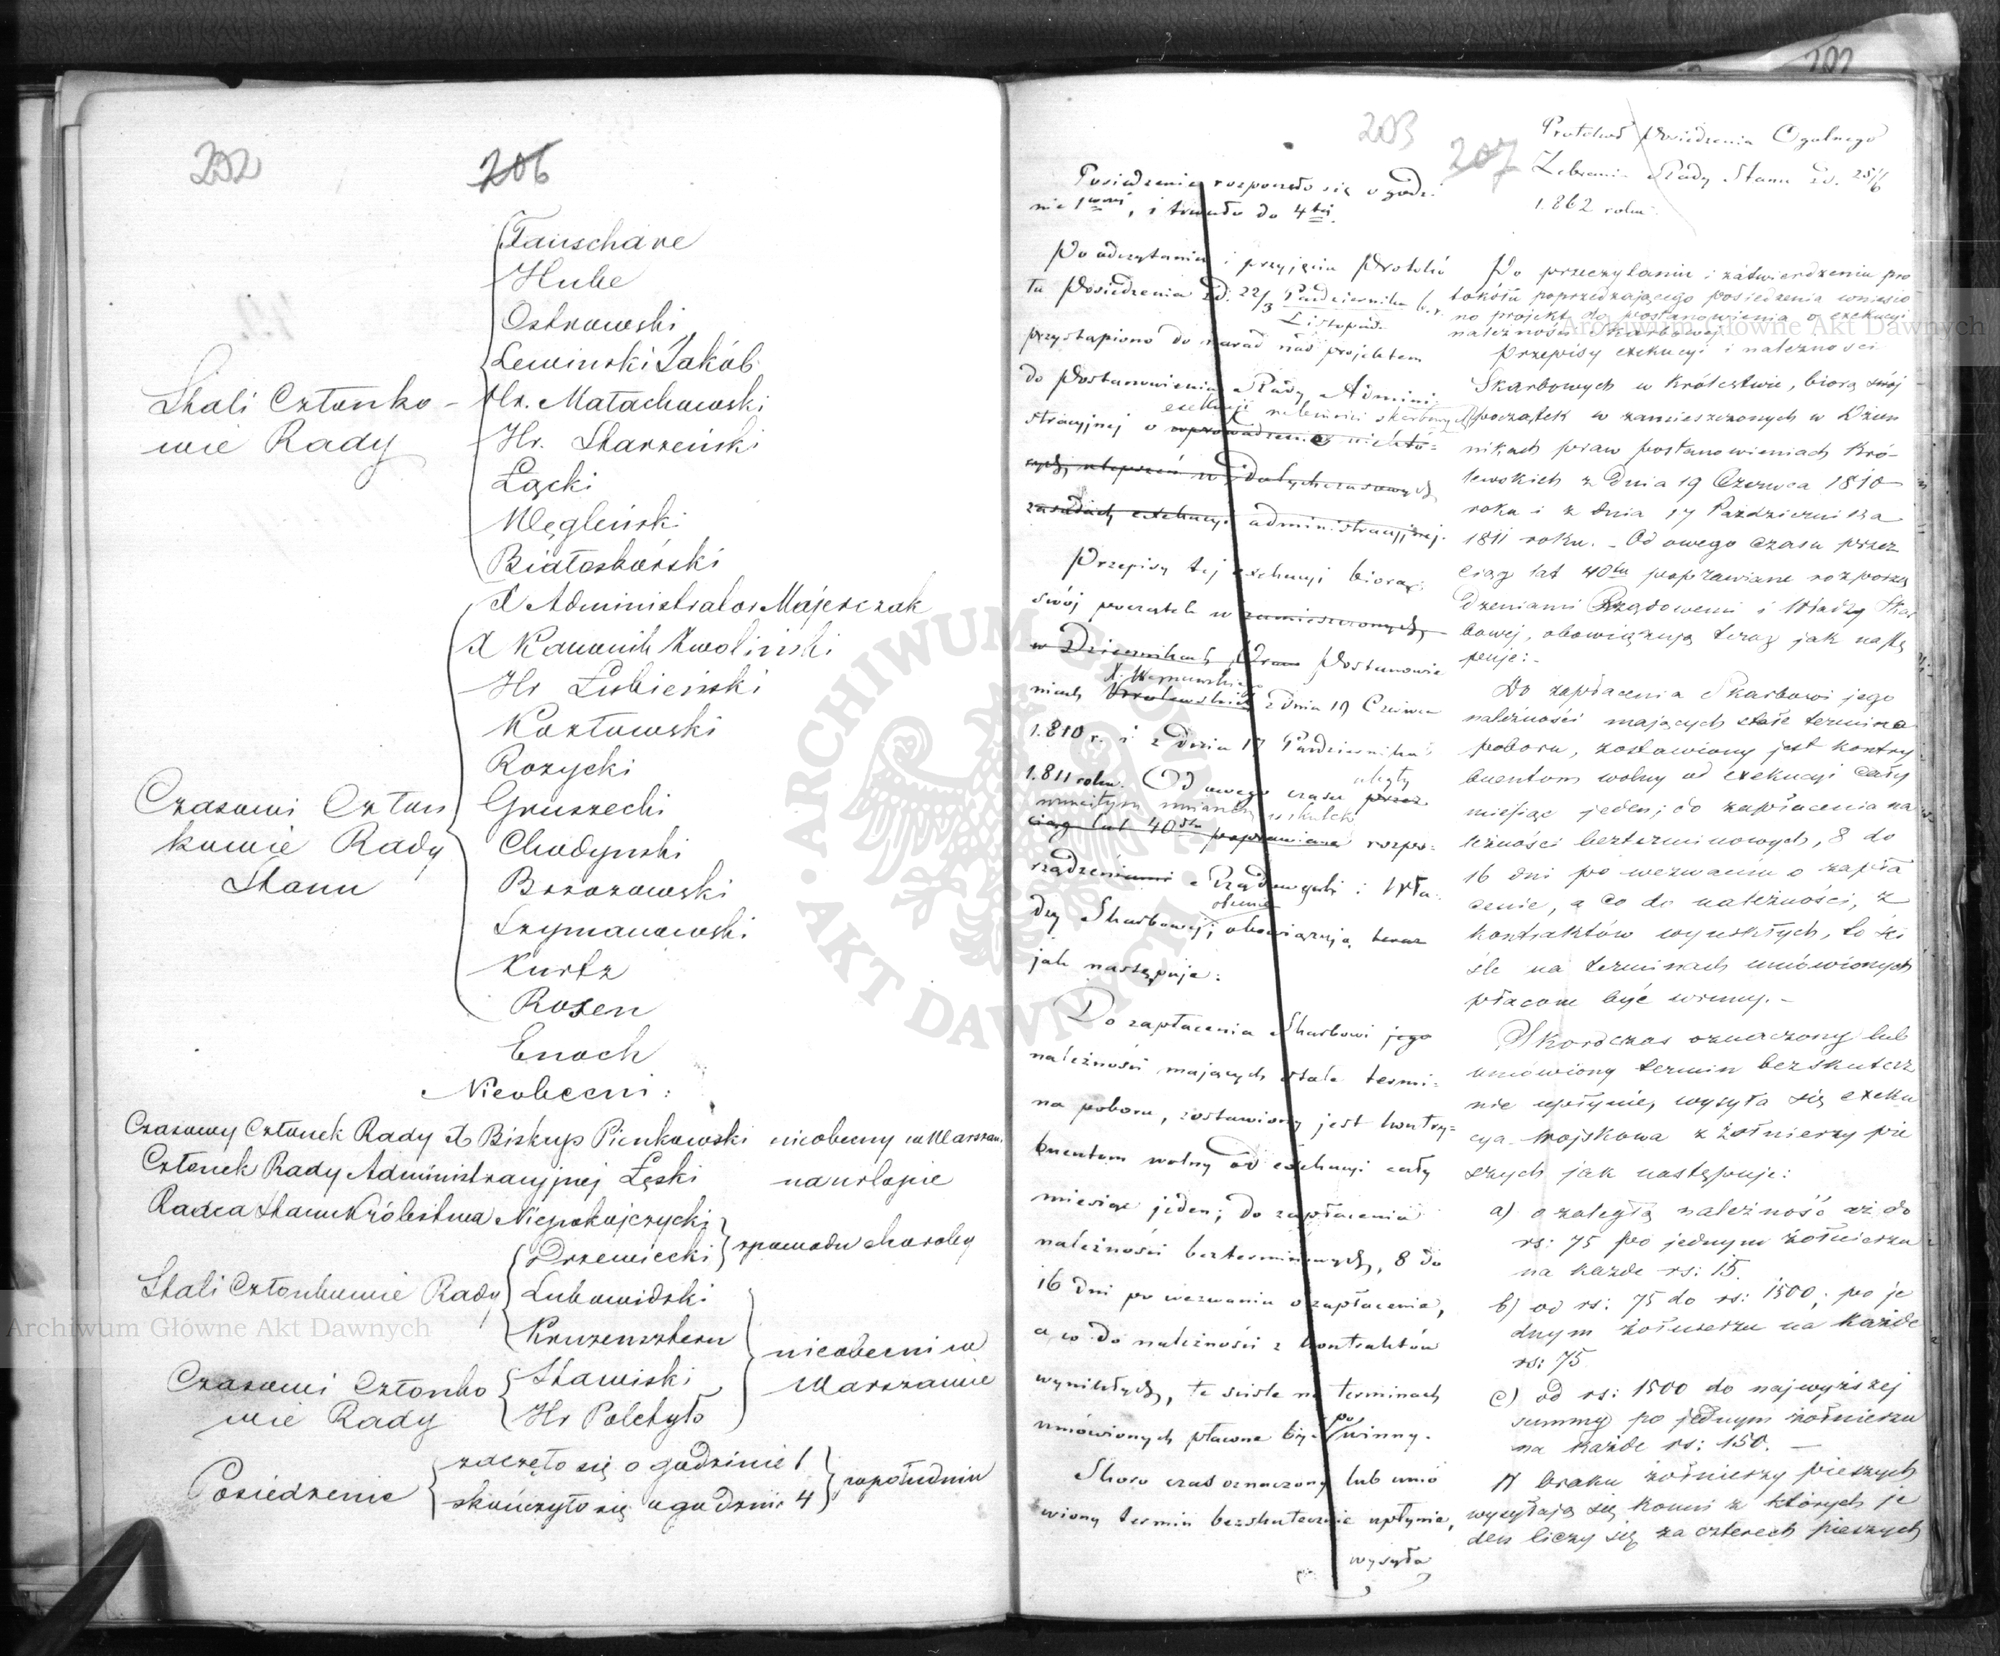 202
206
Fanschave
Hube
Ostrowski
Lewinski Jakób
Hr. Małachowski
Hr. Starzeński
Łącki
Węgleński
Białoskórski
Stali Członko-
wie Rady
X Administrator Majerczak
X Kanonik Zwoliński
Hr Łubieński
Kozłowski
Rozycki
Gruszecki
Chodyński
Brzozowski
Szymanowski
Kurtz
Rosen
Enoch
Czasowi Człon
kowie Rady
Stanu
Nieobecni:
Czasowy Członek Rady X Biskup Pienkowski nieobecny w Warszaw.
Członek Rady Administracyjnej Łęski na urlopie
Radca Stanu Królestwa Niepokojczycki
Drzewiecki
z powodu choroby
Stali Członkowie Rady
Lubowidzki
Kruzensztern
Czasowi Członko
wie Rady
Stawiski
Hr Poletyło
nieobecni w
Warszawie
Posiedzenie
zaczęło się o godzinie 1
skończyło się o godzinie 4
z południa
203
207
202
Posiedzenie rozpoczęło się o godzi
nie 1wszej, i trwało do 4tej
Po odczytaniu i przyjęciu Protokó
łu Posiedzenia z d. 22/3 Października Listopada b.r.
przystąpiono do narad nad projektem
do Postanowienia Rady Admini
exekucyi należności skarbowych
stracyjnej o wprowadzeniu niektó-
rych ulepszeń w dotychczasowych
zasadach exekucyi administracyjnej.
Przepisy tej exekucyi biorą
swój początek w zamieszczonych
w Dziennikach Praw Postanowie
X. Warszawskiego
niach Królewskich z dnia 19 Czerwca
1.810 r. i z dnia 17 Października
1.811 roku. Od owego czasu przez
uległy
ciąg lat 40stu poprawiane rozpo-
rządzeniami Rządowymi i Wła-
dzy Skarbowej, obowiązują teraz
jak następuje:
Do zapłacenia Skarbowi jego
należności mających stale termi-
na poboru, zostawiony jest kontry-
buentom wolny od exekucyi cały
miesiąc jeden; do zapłacenia
należności bezterminowych, 8 do
16 dni po wezwaniu o zapłacenie,
a co do należności z kontraktów
wynikłych, te ściśle na terminach
umówionych płacone być powinny.
Skoro czas oznaczony lub umó
wiony termin bezskutecznie upłynie,
wysyła
Protokół Posiedzenia Ogólnego
Zebrania Rady Stanu z d. 25/6
1.862 roku.
Po przeczytaniu i zatwierdzeniu pro
tokółu poprzedzającego posiedzenia wniesio
no projekt do postanowienia o exekucyi
należności skarbowej.
Przepisy exekucyi i należności
Skarbowych w Królestwie, biorą swój
początek w zamieszczonych w Dzien
nikach praw postanowieniach Kró-
lewskich z dnia 19 Czerwca 1810
roku i z dnia 17 Października
1811 roku. - Od owego czasu przez
ciąg lat 40tu poprawiane rozporzą
dzeniami Rządowemi i Władzy Skar
bowej, obowiązują teraz jak nastę
puje:-
Do zapłacenia Skarbowi jego
należności mających stałe termina
poboru, zostawiony jest kontry
buentom wolny od exekucyi cały
miesiąc jeden; do zapłacenia na
leżności bezterminowych, 8 do
16 dni po wezwaniu o zapła
cenie, a co do należności, z
kontraktów wynikłych, to ści
śle na terminach umówionych
płacone być winny.-
Skoro czas oznaczony lub
umówiony termin bezskutecz
nie upłynie, wysyła się exeku
cya wojskowa z żołnierzy pie
szych jak następuje:
a) o zaległą należność aż do
rs: 75 po jednym żołnierzu
na każde rs: 15.
b) od rs: 75 do rs: 1500, po je
dnym żołnierzu na każde
rs: 75
c) od rs: 1500 do najwyższej
summy po jednym żołnierzu
na każde rs: 150. -
W braku żołnierzy pieszych
wysyłają się konni z których je
den liczy się za czterech pieszych
Archiwum Główne Akt Dawnych
Archiwum Główne Akt Dawnych
ARCHIWUM GŁÓWNE AKT DAWNYCH